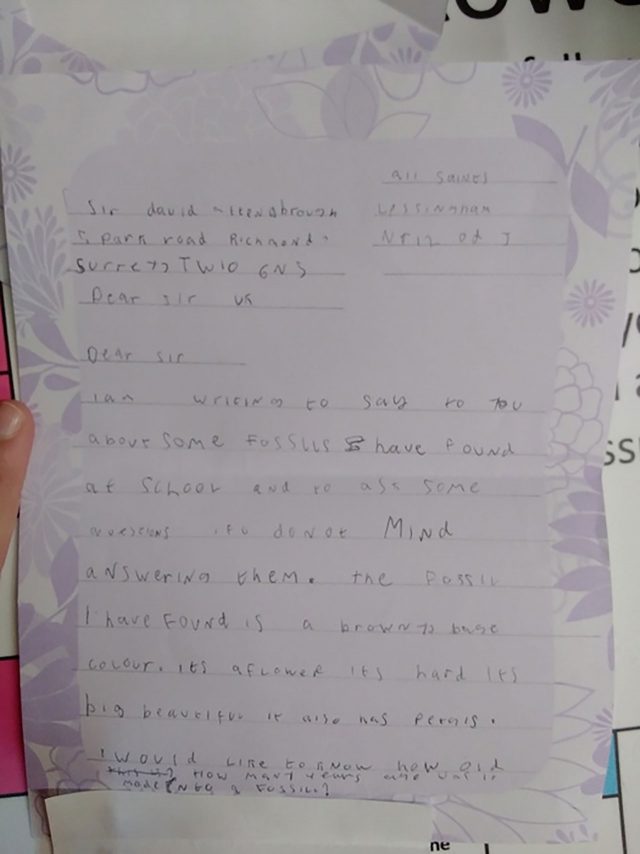 all saints
Sir david Attenabrough
Lessingham
5 Park road Richmond,
NR12 0dJ
Surrey TW10 6NS
Dear sir
Dear sir
I am writing to say to you
about some Fossils I have Found
at School and to ask some
questions if u do not Mind
answering them. the Fossil
I have Found is a browny bage
colour. its a flower its hard its
big beautiful it also has Petals.
I Would Like to know how old
How many years
made into a Fossil?